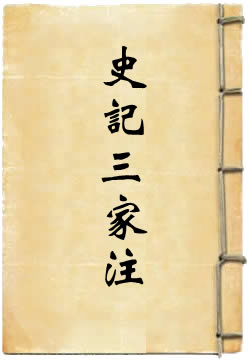 史記三家注